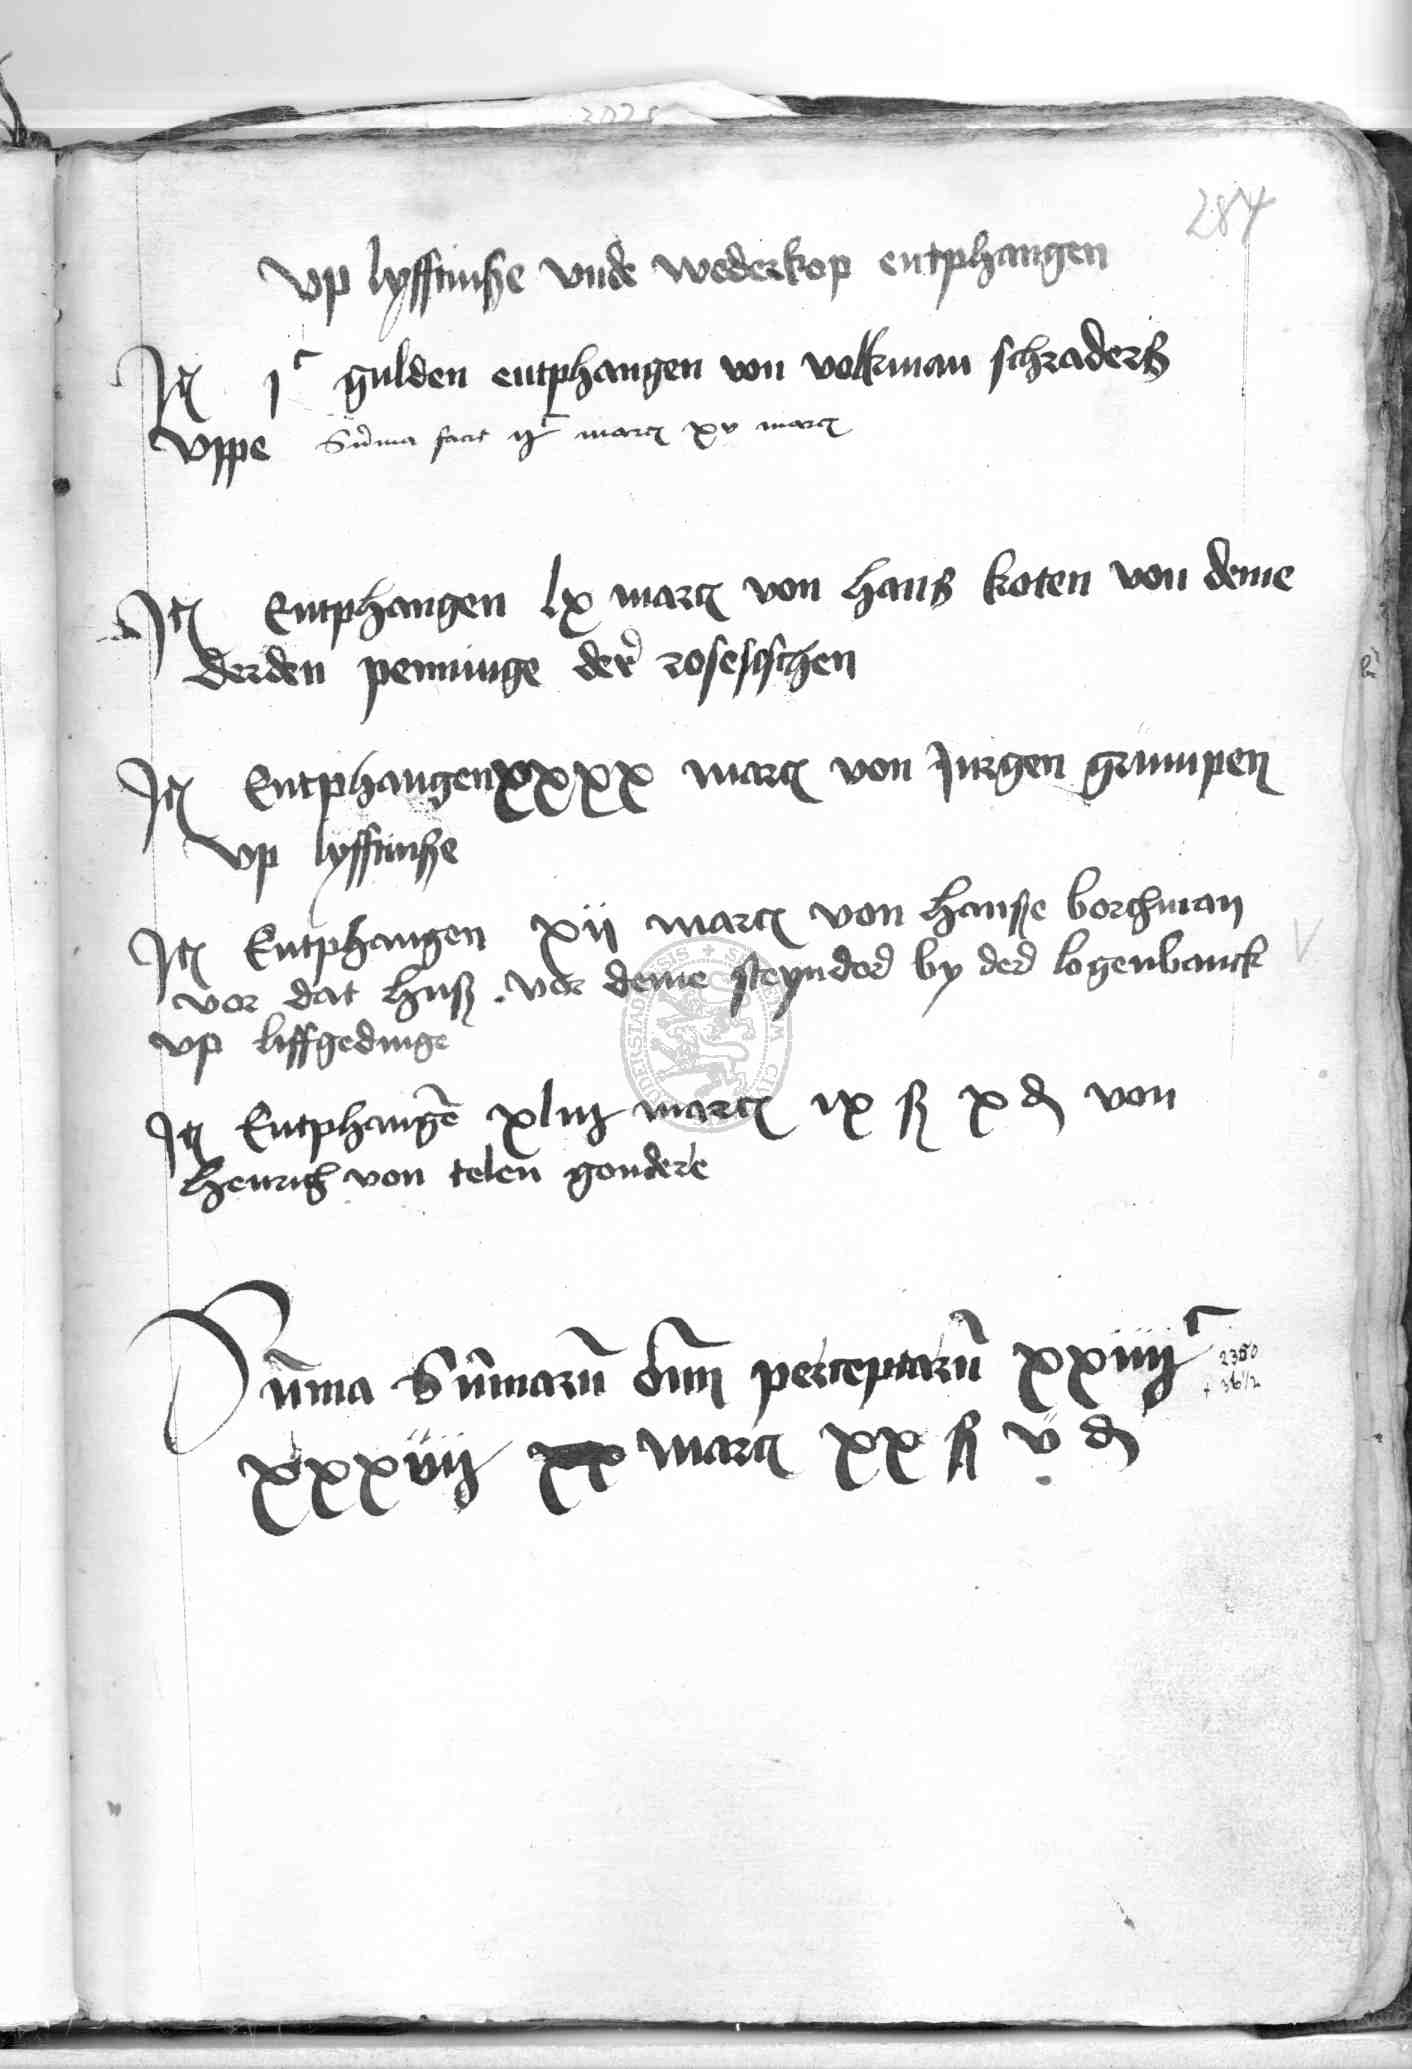 284
vp lyfftinße vnde wederkop entphangen
Itꝫ jᶜ gulden entphangen von volkman schraders
vppe Sūma facit ijᶜ marcꝫ xv marcꝫ
Itꝫ Entphangen lx marcꝫ von hans koten von deme
derden penninge der roseschen
Itꝫ Entphangen xxxx marcꝫ von Jurgen grumpen
vp lyfftinße
Itꝫ Entphangen xij marcꝫ von hanße borchman
vor dat huß vor deme steyndor by der logenbanck
vp liffgedinge
Itꝫ Entphangē xliij marcꝫ ix ß x ₰ von
Henrich von telen gondere
Sūma Sūmarū oīm perceptarū xxiiijᶜ
2350
+ 36 1/2
xxxviij marcꝫ xx ß v ₰